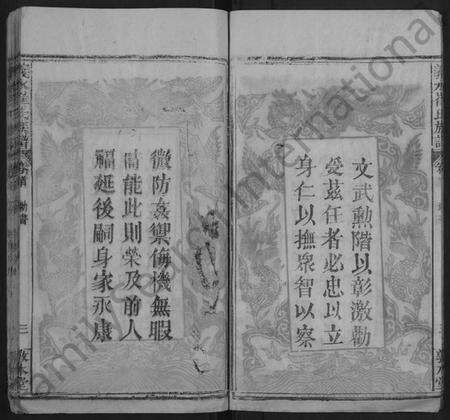 文武勳階以彰激勸
受茲任者必忠以立
身仁以撫眾智以察
微防姦禦侮機無暇
能此則榮及前人
福延後嗣身家永康
三
敦本堂
敦本堂
familysearch international